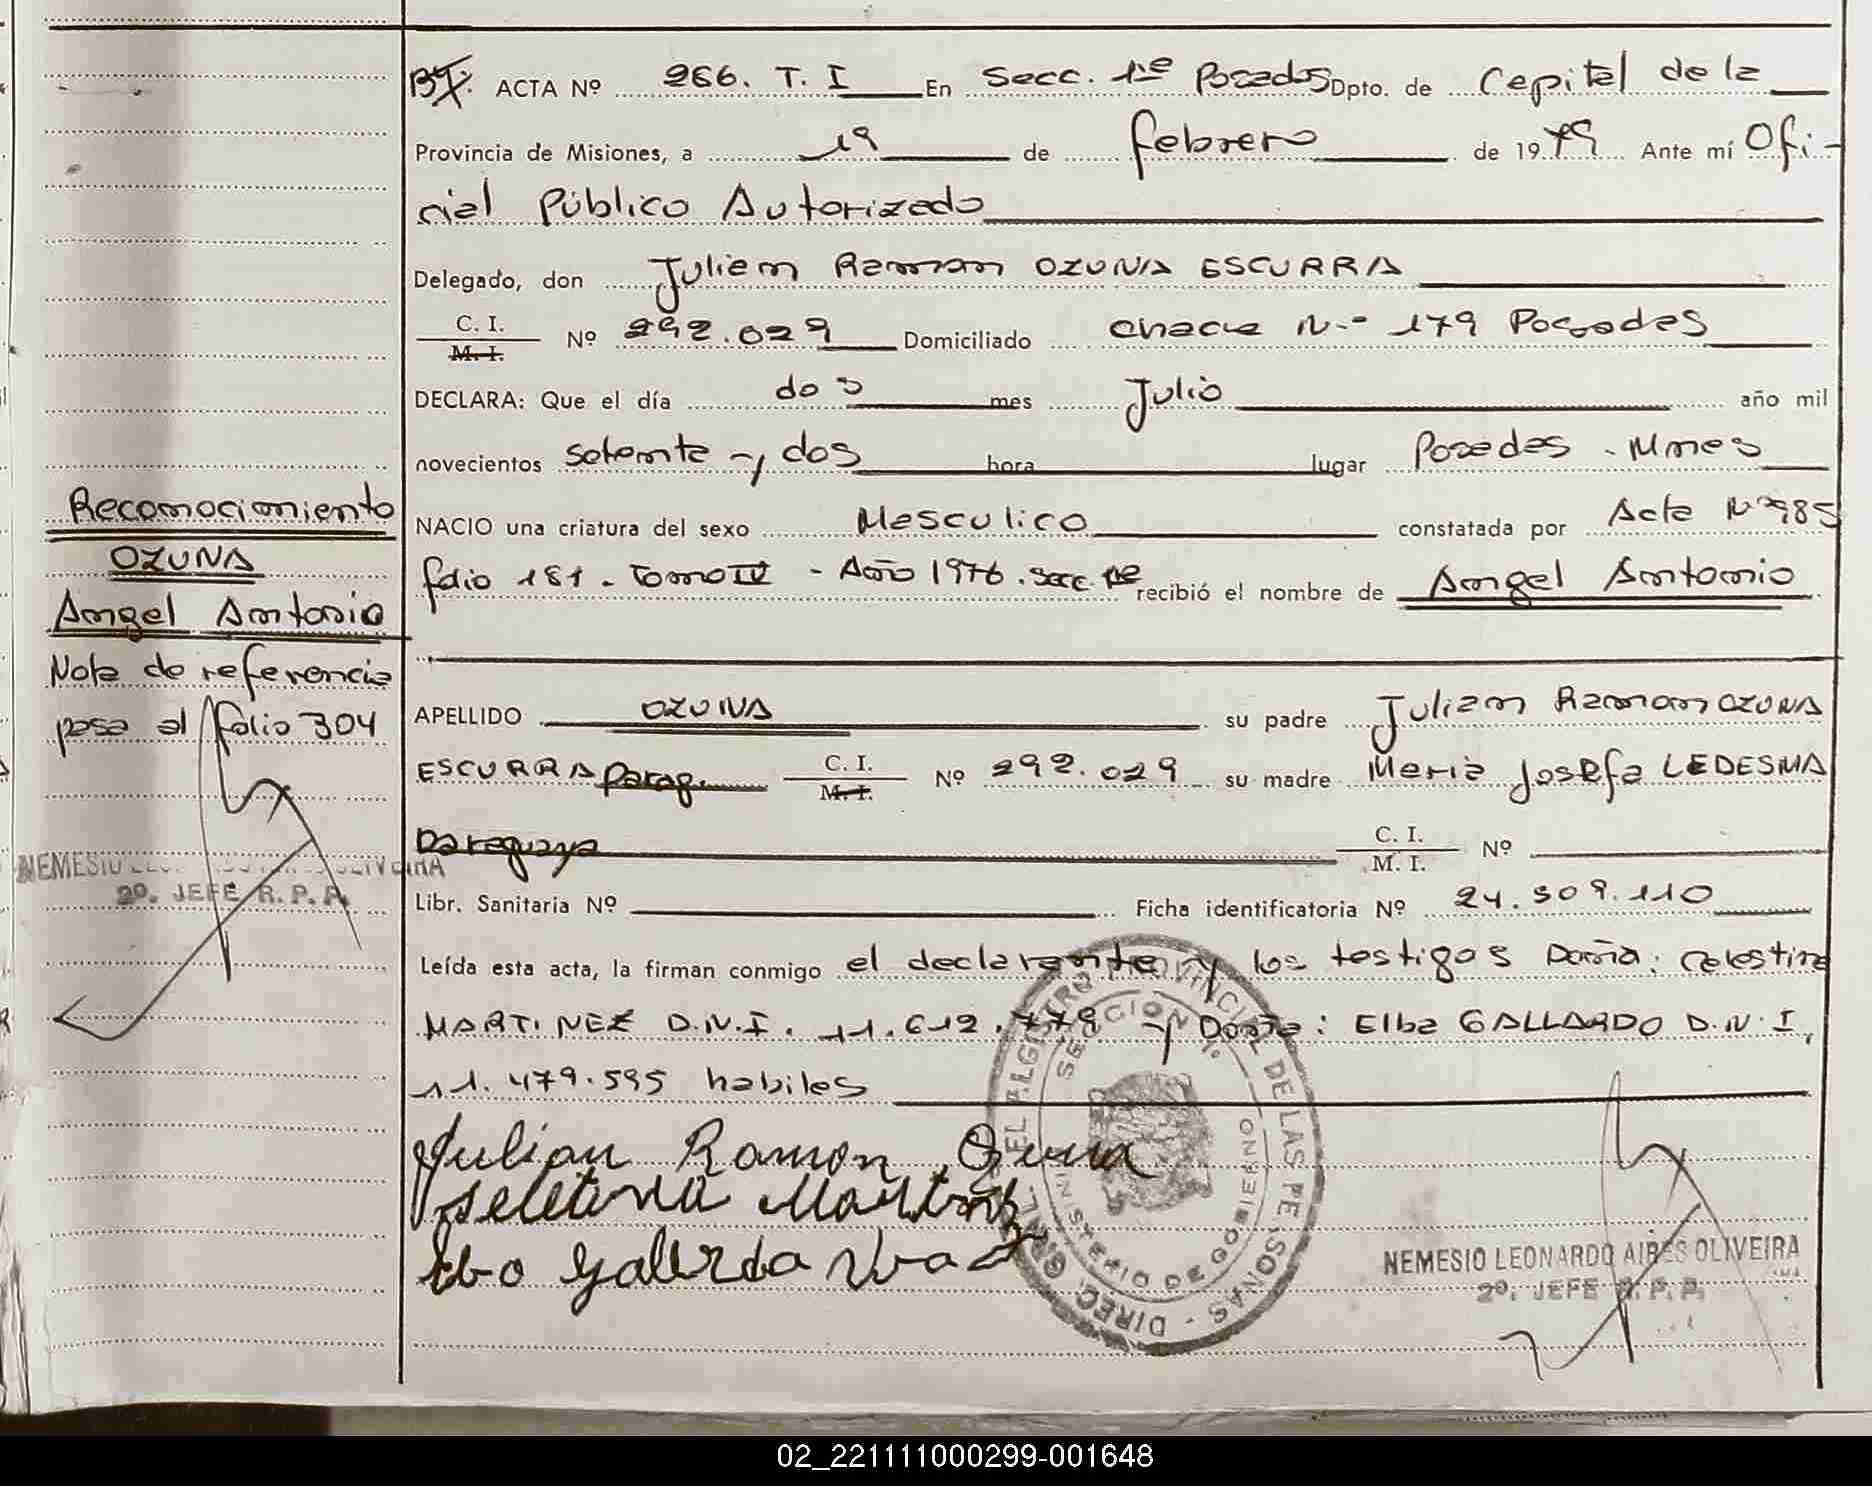 ACTA Nº 266. T. I En Secc. 1ra Posadas Dpto. de Capital de la
Provincia de Misiones, a 19 de febrero de 1979 Ante mí Ofi-
cial Público Autorizado
Delegado, don Julian Ramon OZUNA ESCURRA
C. I.
M. I.
Nº 292.029 Domiciliado chacra N.º 179 Posadas
DECLARA: Que el día dos mes Julio año mil
novecientos setenta y dos hora lugar Posadas - Mnes
Reconocimiento
OZUNA
Angel Antonio
Nota de referencia
pasa al folio 304
NEMESIO OLIVEIRA
2º. JEFE R. P. P.
NACIO una criatura del sexo Masculico constatada por Acta Nº 985
folio 181 - Tomo IV - Año 1976. Secc. 1ra recibió el nombre de Angel Antonio
APELLIDO OZUNA su padre Julian Ramon OZUNA
ESCURRA Parag. C. I.
M. I.
Nº 292.029 su madre Maria Josefa LEDESMA
Paraguaya C. I.
M. I.
Nº
Libr. Sanitaria Nº Ficha identificatoria Nº 24.509.110
Leída esta acta, la firman conmigo el declarante y los testigos Doña: Celestina
MARTINEZ D.N.I. 11.612.778 y Doña: Elba GALLARDO D.N.I.
11.479.595 habiles
Julian Ramon Ozuna
DIREC. GRAL. DEL REGISTRO PROVINCIAL DE LAS PERSONAS
SECCION 1º
MINISTERIO DE GOBIERNO
NEMESIO LEONARDO AIRES OLIVEIRA
2º. JEFE R. P. P.
02_221111000299-001648